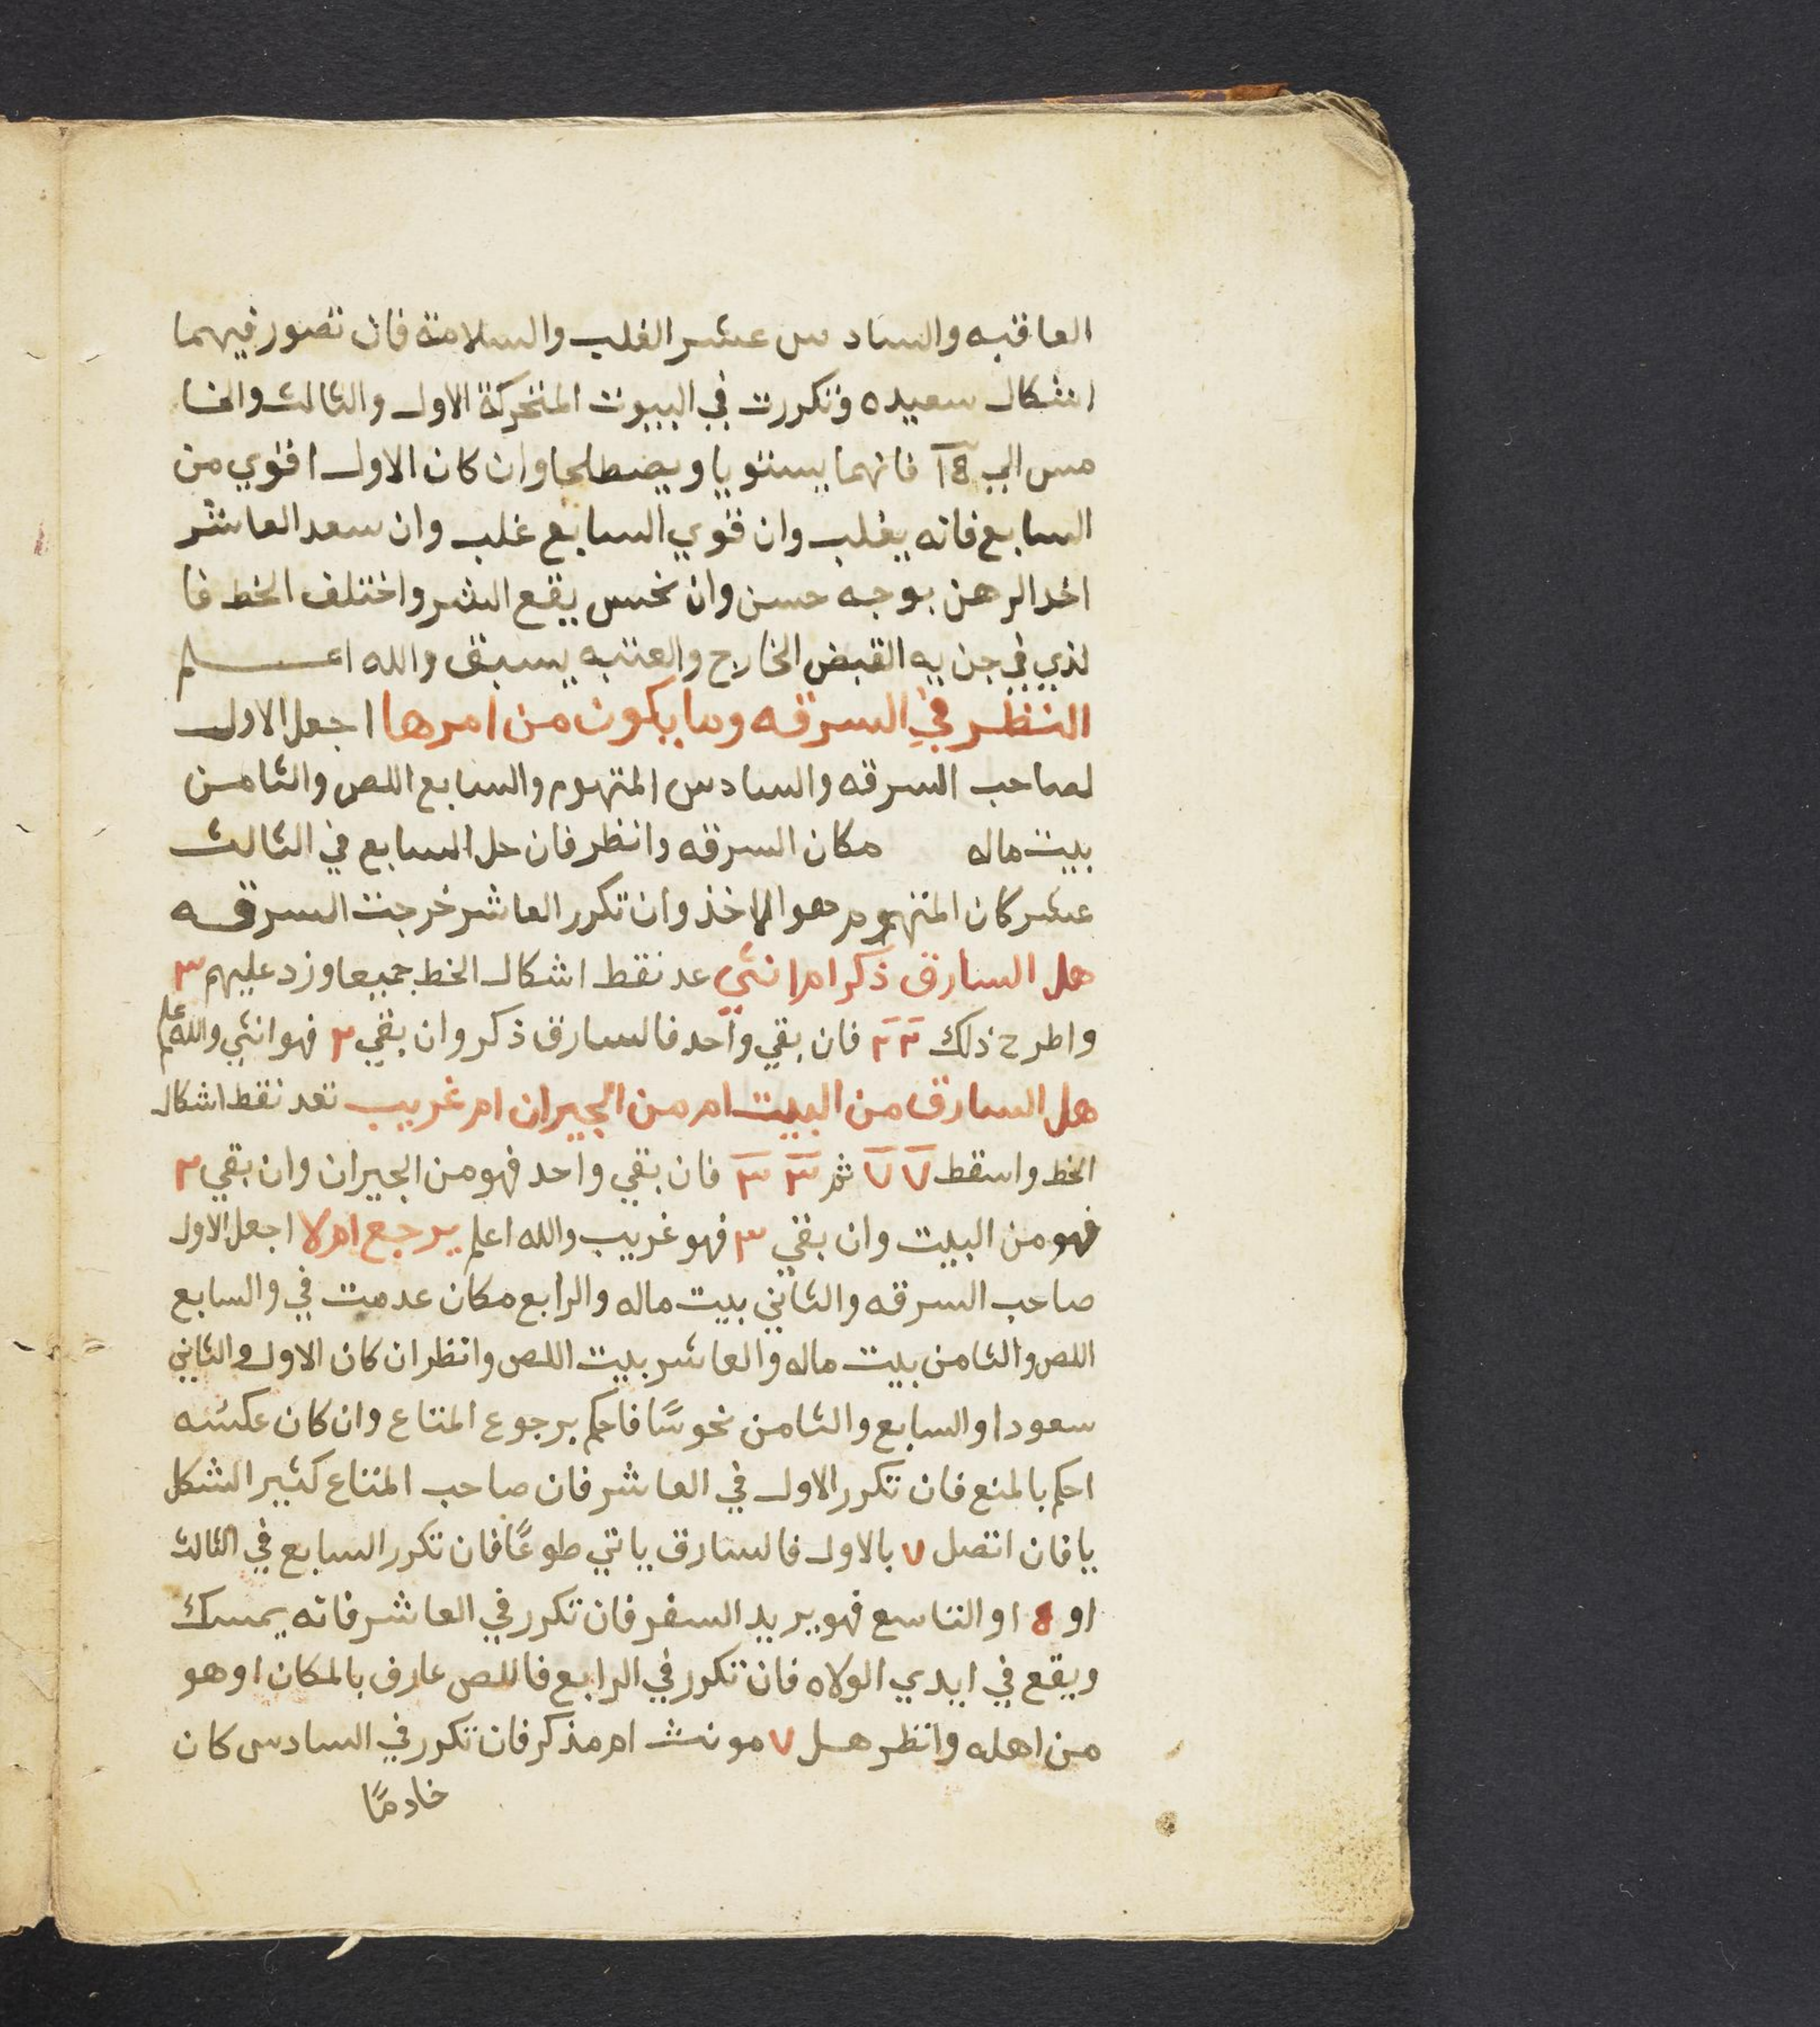 العاقبه والسادس عشر الغلب والسلامة فان تصور فيهما
اشكال سعيده وتكررت في البيوت المتحركة الاول والثالث والخا
مس الي فانهما يستويا ويصطلحا وان كان الاول اقوي من
السابع فانه يغلب وان قوي السابع غلب وان سعد العاشر
اخد الرهن بوجه حسن وان نحس يقع الشر واختلف الخط فا
لذي في جن به القبض الخارج والعتبه يسبق والله اعلم
النظر في السرقه وما يكون من امرها اجعل الاول
لصاحب السرقه والسادس المتهوم والسابع اللص والثامن
بيت ماله مكان السرقه وانظر فان حل السابع في الثالث
عشر كان المتهوم هو الاخذ وان تكرر العاشر خرجت السرقه
هل السارق ذكر ام انثي عد نقط اشكال الخط جميعا وزد عليهم ٣
واطرح ذلك ٢ ٢ فان بقي واحد فالسارق ذكر وان بقي ٢ فهو انثي والله اعلم
هل السارق من البيت ام من الجيران ام غريب تعد نقط اشكال
الخط واسقط ٧ ٧ ثم ٣ ٣ فان بقي واحد فهو من الجيران وان بقي ٢
فهو من البيت وان بقي ٣ فهو غريب والله اعلم يرجع ام لا اجعل الاول
صاحب السرقه والثاني بيت ماله والرابع مكان عدمت في والسابع
اللص والثامن بيت ماله والعاشر بيت اللص وانظر ان كان الاول والثاني
سعودا والسابع والثامن نحوسًا فاحكم برجوع المتاع وان كان عكسه
احكم بالمنع فان تكرر الاول في العاشر فان صاحب المتاع كثير الشكا
يا فان اتصل ٧ بالاول فالسارق ياتي طوعًا فان تكرر السابع في الثالث
او او التاسع فهو يريد السفر فان تكرر في العاشر فانه يمسك
ويقع في ايدي الولاه فان تكرر في الرابع فاللص عارف بالمكان او هو
من اهله وانظر هل ٧ مونث ام مذكر فان تكرر في السادس كان
خادمًا